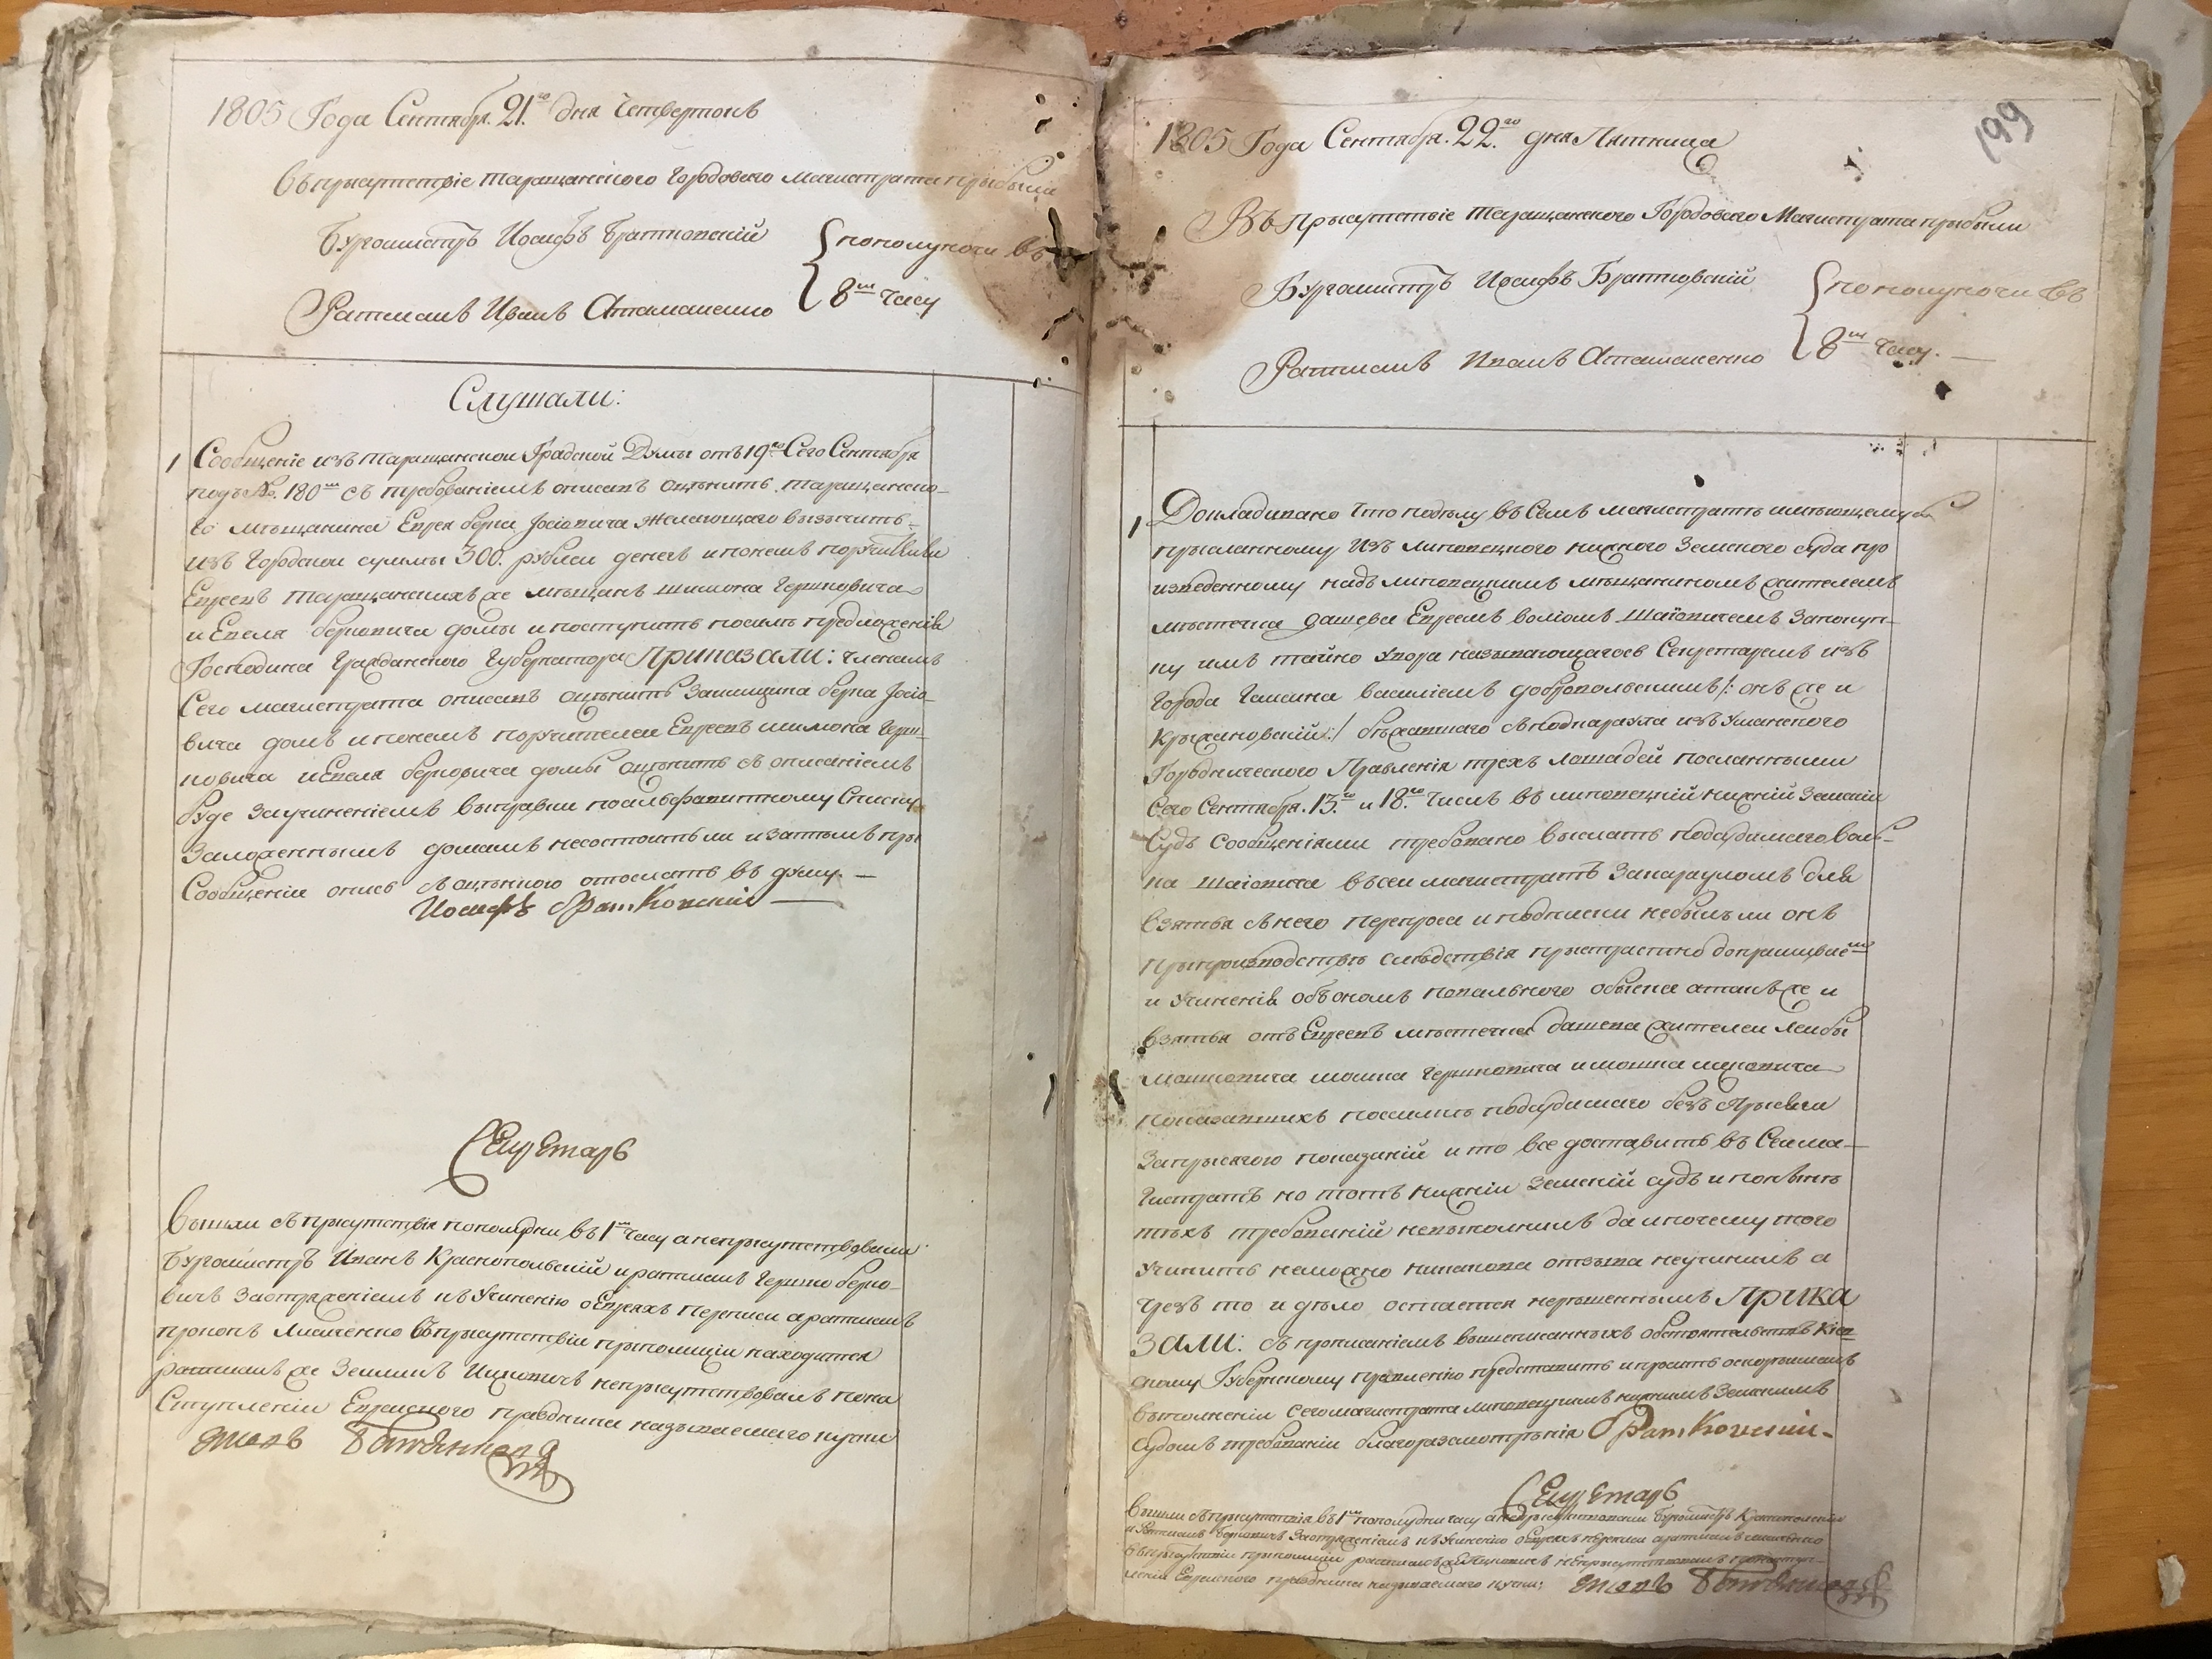 1805 Года Сентября 21.го дня Четвертокъ
Въ присутствіе таращанского Городового Магистрата прибыли
Бургомистръ Иосифъ Братковскій { пополуночи въ
Ратманъ Иванъ Атаманенко { 8м часу
Слушали:
1 Сообщеніе изъ таращанской Градской Думы отъ 19го Сего Сентября
подъ №. 180м съ требованіемъ описать оценить таращанско-
го мѣщанина Еврея берка Јосіовича желающаго
изъ Городской суммы 300. рублей денегъ
Евреевъ таращанскихъ же мѣщанъ шимона Гершковича
и берковича домы и поступить посилѣ предложенія
Господина Гражданского Губернатора Приказали: членамъ
Сего магистрата описать оценить Заимщика берка Јосіо-
вича домъ Евреевъ шимона Герш-
ковича и берковича домы оценить съ описаніемъ
Буде Заучиненіемъ выправки поалфавитному Списку
Заложеннымъ домамъ несостоитъ ли и затѣмъ при
Сообщеніи опись съ оценкою отослать въ думу. —
Иосифъ Братковскій —
Секретарь
Вышли съ присутствія пополудни въ 1м часу а неприсутствовали
Бургомистръ Иванъ Краснопольскій и ратманъ Гершко берко-
вичъ Заотряженіемъ къ Учиненію о Евреяхъ переписи а ратманъ
прокопъ Лисаченко въ присутствіи при полиціи находится
ратманъ же Зельманъ Ицковичъ неприсутствовалъ пона
Ступленіи Еврейского праздника называемаго кучки
199
1805 Года Сентября. 22.го дня Пятница
Въ Присутствіе таращанского Городового Магистрата прибыли
Бургомистръ Иосифъ Братковскій { пополуночи въ
Ратманъ Иванъ Атаманенко { 8м часу. —
1 Докладывано что подѣлу въ Семъ магистратѣ имѣющемуся
присланному Изъ липовецкого нижного Земского суда про
изведенному надъ липовецкимъ мѣщаниномъ жителемъ
мѣстечка дашева Евреемъ волкомъ шаіовичемъ Запокуп-
ку имъ тайно Увора називающагось Секретаремъ изъ
Города Гайсина василіемъ добровольскимъ /: онъ же и
Крыжановскій:/ бѣжавшаго съ подкараула изъ Уманского
Городнического Правленія трехъ лошадей посланными
Сего Сентября. 13.го и 18.го чиселъ въ липовецкій нижній Земскій
Судъ сообщеніями требовано выслать подсудимаго воль-
ка шаіовича въ сей магистратъ Закарауломъ для
взятья съ него переспроса и подписки небылъ ли онъ
При производствѣ слѣдствія пристрастно допрашиванъ
и Учиненія объ ономъ повального обыска а такъ же и
взятья отъ Евреевъ мѣстечка дашева жителей лейбы
мошковича мошка Гершковича и мошка
показавшихъ посилѣ подсудимаго безъ присяги
Заприсягою показаній и то все доставить въ Сей ма-
гистратъ но тотъ нижній земскій судъ и поныне
тѣхъ требованій невыполнилъ да и почему того
учинить неможно никакова отзыва неучинилъ а
чрезъ то и дѣло остается нерѣшеннымъ Прика
Зали: съ прописаніемъ вышеписанныхъ обстоятельствъ Кіев-
скому Губернскому правленію представить и просить оскорѣйшемъ
выполненіи Сего магистрата липовецкимъ нижнимъ Земскимъ
Судомъ требованіи благоразсмотрѣнія Братковскій.
Секретарь
Вышли съ присутствія въ 1м пополудни часу а неприсутствовали Бургомистръ Краснопольскій
и Ратманъ берковичъ Заотряженіемъ къ Учиненію о Евреяхъ переписи а ратманъ лисаченко
въ присутствіи при полиціи ратманъ же Ицковичъ неприсутствовалъ понаступ-
леніи Еврейского праздника называемаго кучки;